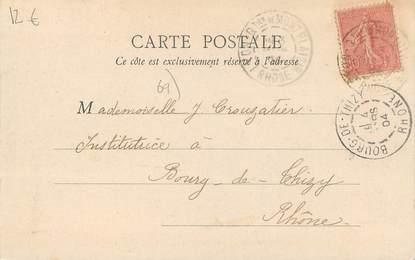 12 €
CARTE POSTALE
Ce côté est exclusivement réservé à l'adresse
69)
Mademoiselle J. Crouzatier
Institutrice à
Bourg-de-Thizy
Rhône
RHONE
BOURG-DE-THIZY
RHONE
04